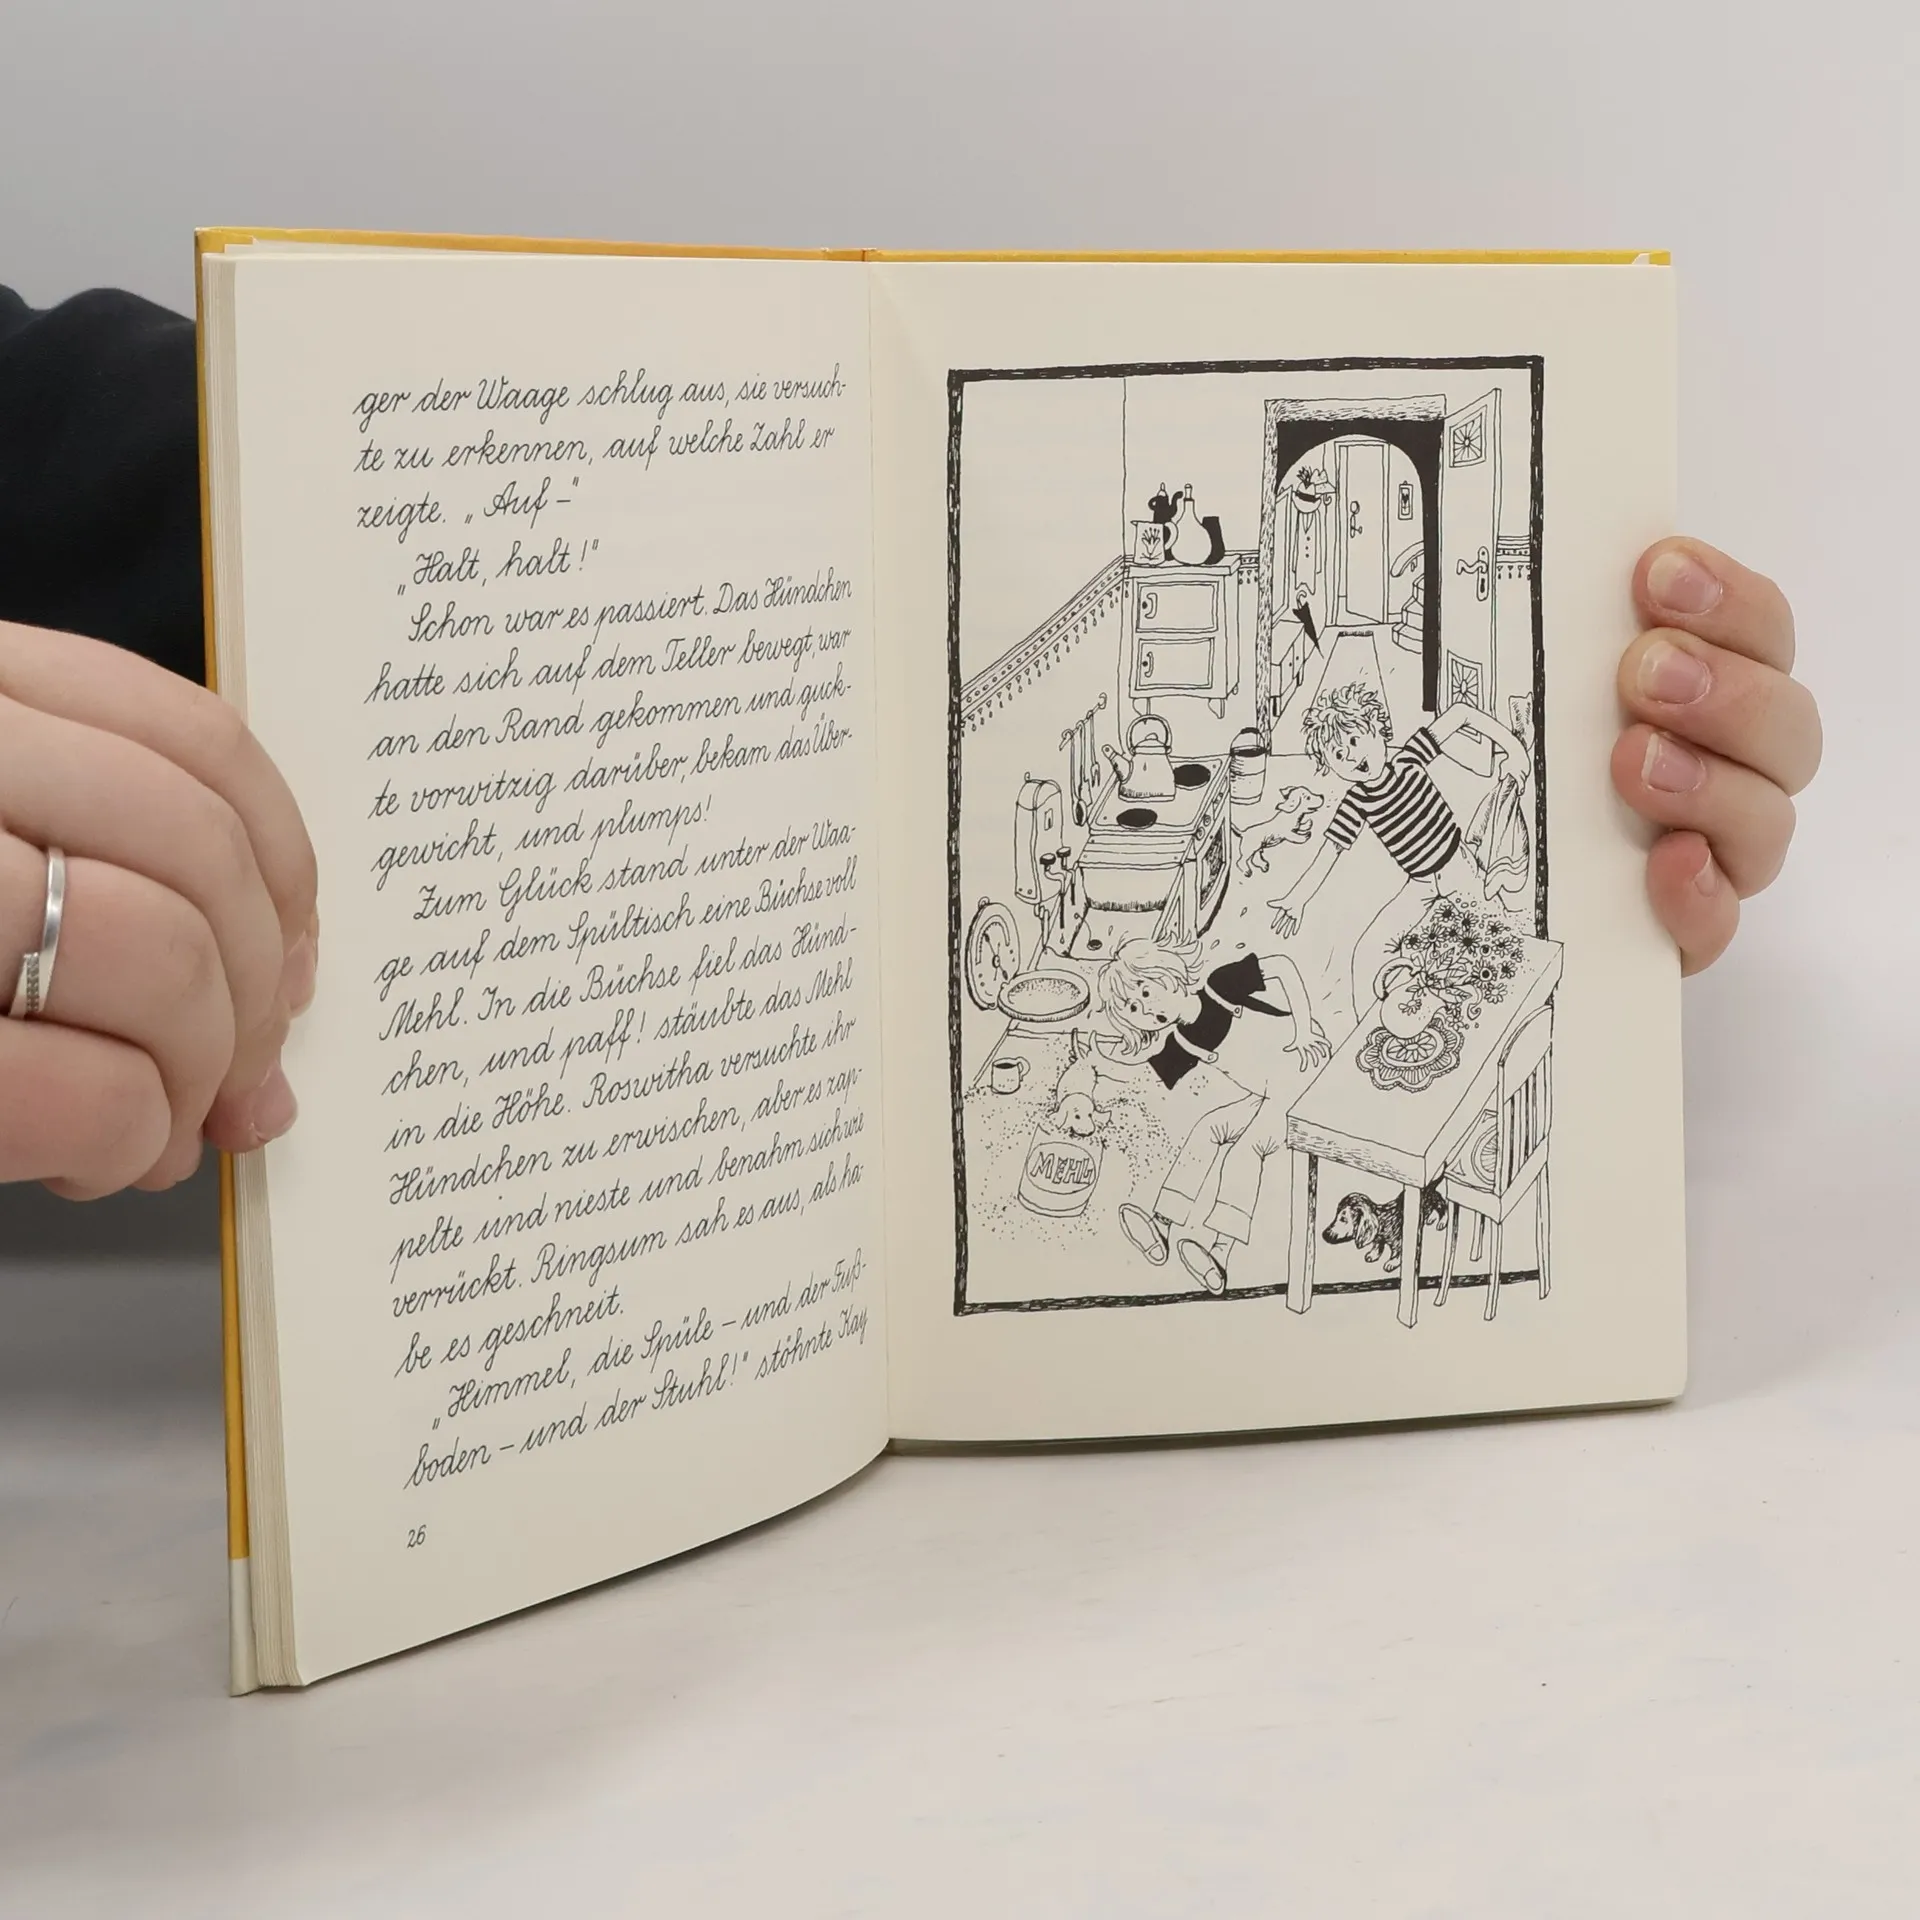 ger der Waage schlug aus, sie versuch-
te zu erkennen, auf welche Zahl er
zeigte. „Auf –"
„Halt, halt!"
Schon war es passiert. Das Hündchen
hatte sich auf dem Teller bewegt, war
an den Rand gekommen und guck-
te vorwitzig darüber, bekam das Über-
gewicht, und plumps!
Zum Glück stand unter der Waa-
ge auf dem Spültisch eine Büchse voll
Mehl. In die Büchse fiel das Hünd-
chen, und paff! stäubte das Mehl
in die Höhe. Roswitha versuchte ihr
Hündchen zu erwischen, aber es zap-
pelte und nieste und benahm sich wie
verrückt. Ringsum sah es aus, als ha-
be es geschneit.
„Himmel, die Spüle – und der Fuß-
boden – und der Stuhl!" stöhnte Kay
26
MEHL